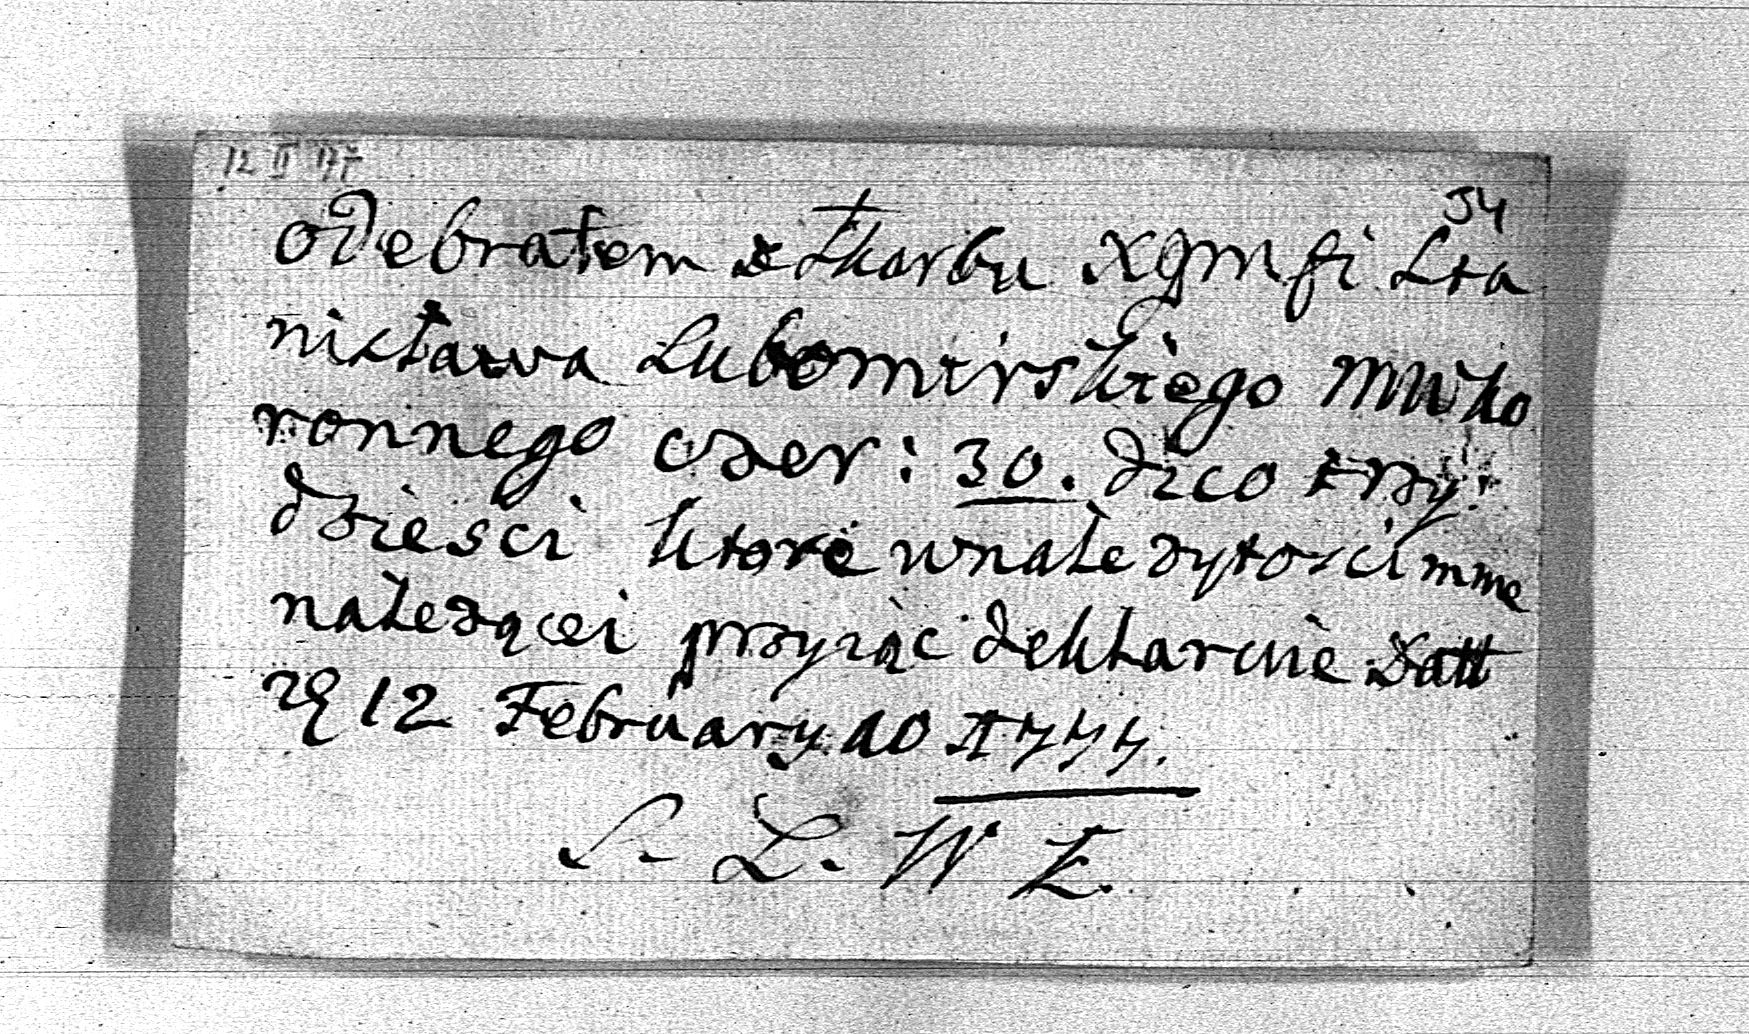 12 II 177
54
odebrałem z skarbu Xgmsi Sta
nisława Lubomirskiego MWko
ronnego czer: 30. dico trzy
dzieści ktore wnależytości mnie
należącei przyiąc deklaruie Datt
12 February ao 1777.
S. L. W K.